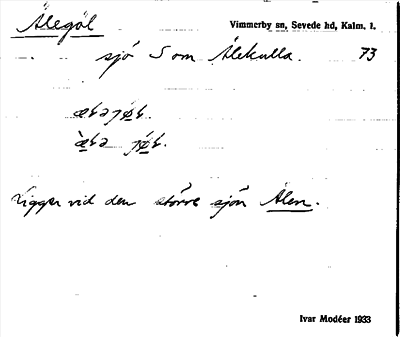 Älegöl
Vimmerby sn, Sevede hd, Kalm. l.
sjö S om Älekulla. 73
Ligger vid den större sjön Ålen.
Ivar Modéer 1933